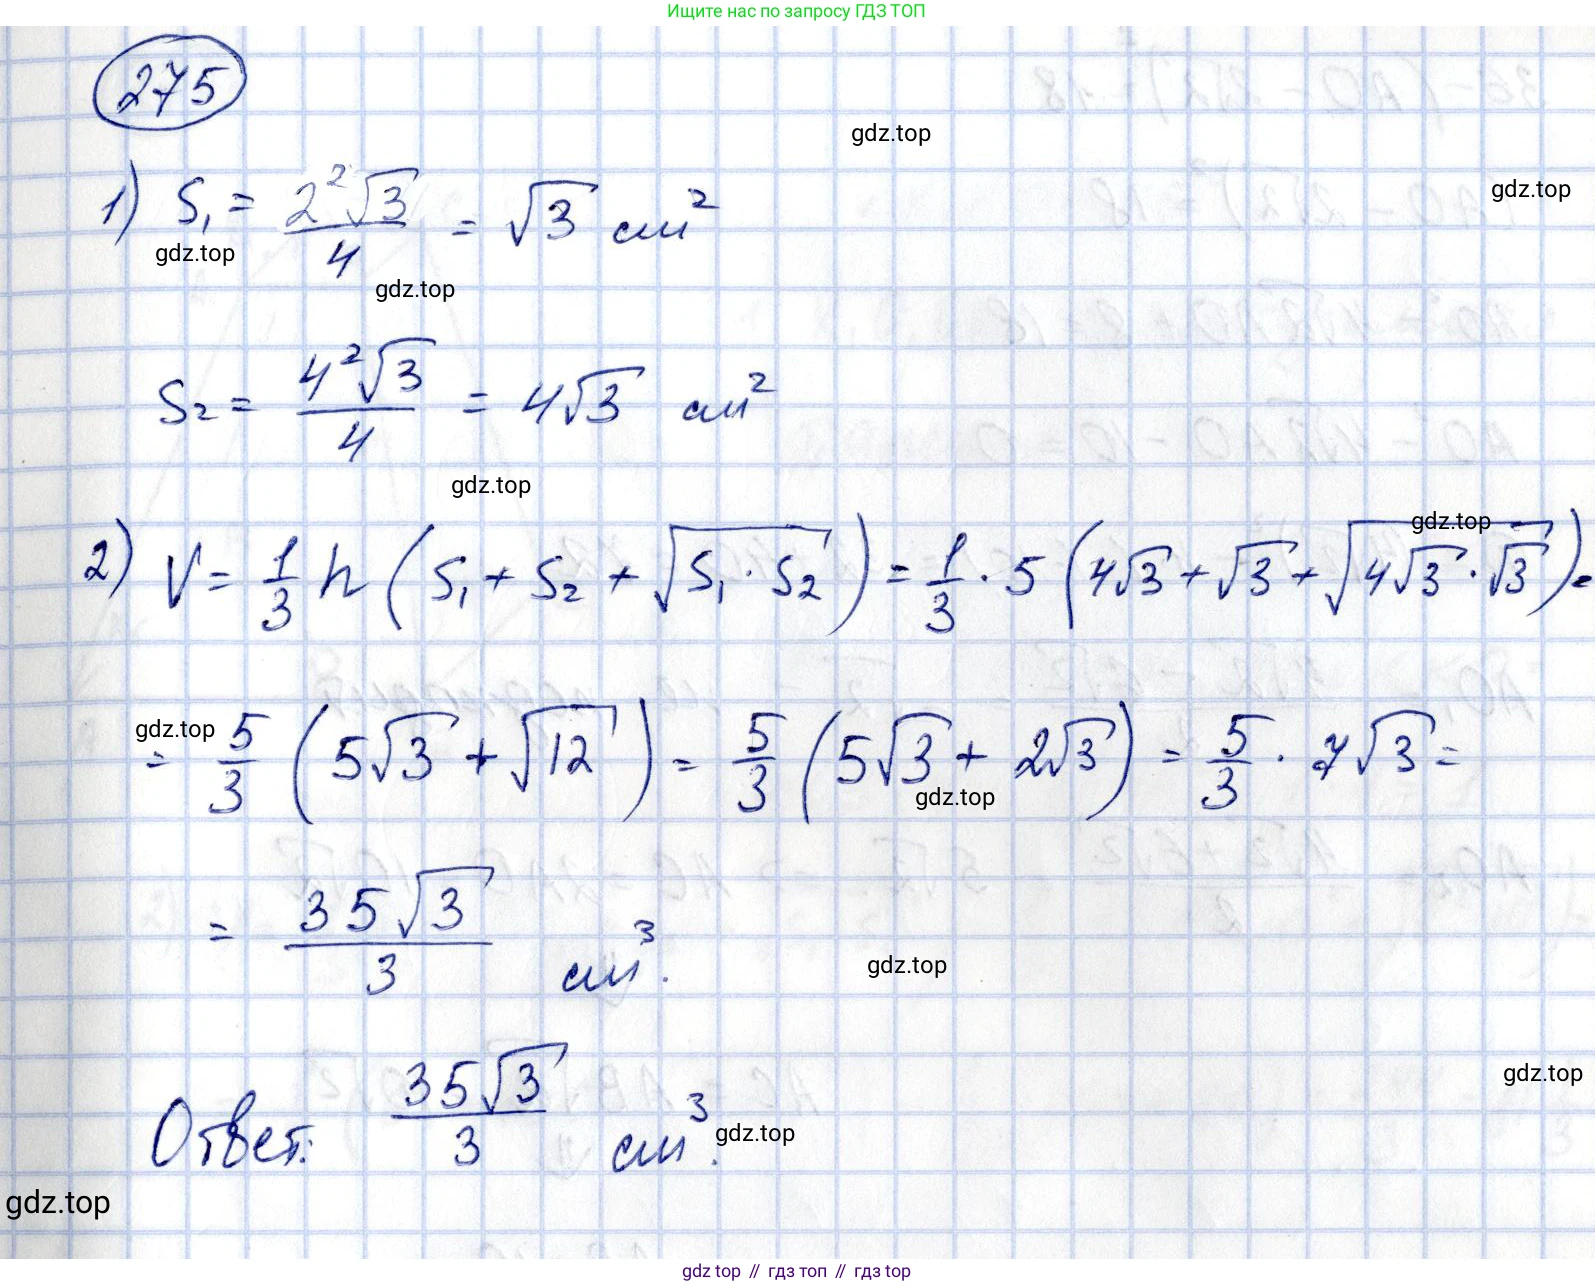 Ищите нас по запросу ГДЗ ТОП
275
gdz.top
1) S₁ = 2²√3/4 = √3 см²
gdz.top
gdz.top
gdz.top
S₂ = 4²√3/4 = 4√3 см²
gdz.top
gdz.top
2) V = 1/3 h (S₁ + S₂ + √(S₁ · S₂)) = 1/3 · 5 (4√3 + √3 + √(4√3 · √3)) =
gdz.top
= 5/3 (5√3 + √12) = 5/3 (5√3 + 2√3) = 5/3 · 7√3 =
gdz.top
= 35√3/3 см³.
gdz.top
gdz.top
Ответ: 35√3/3 см³.
gdz.top
gdz.top
gdz top // гдз топ // gdz top